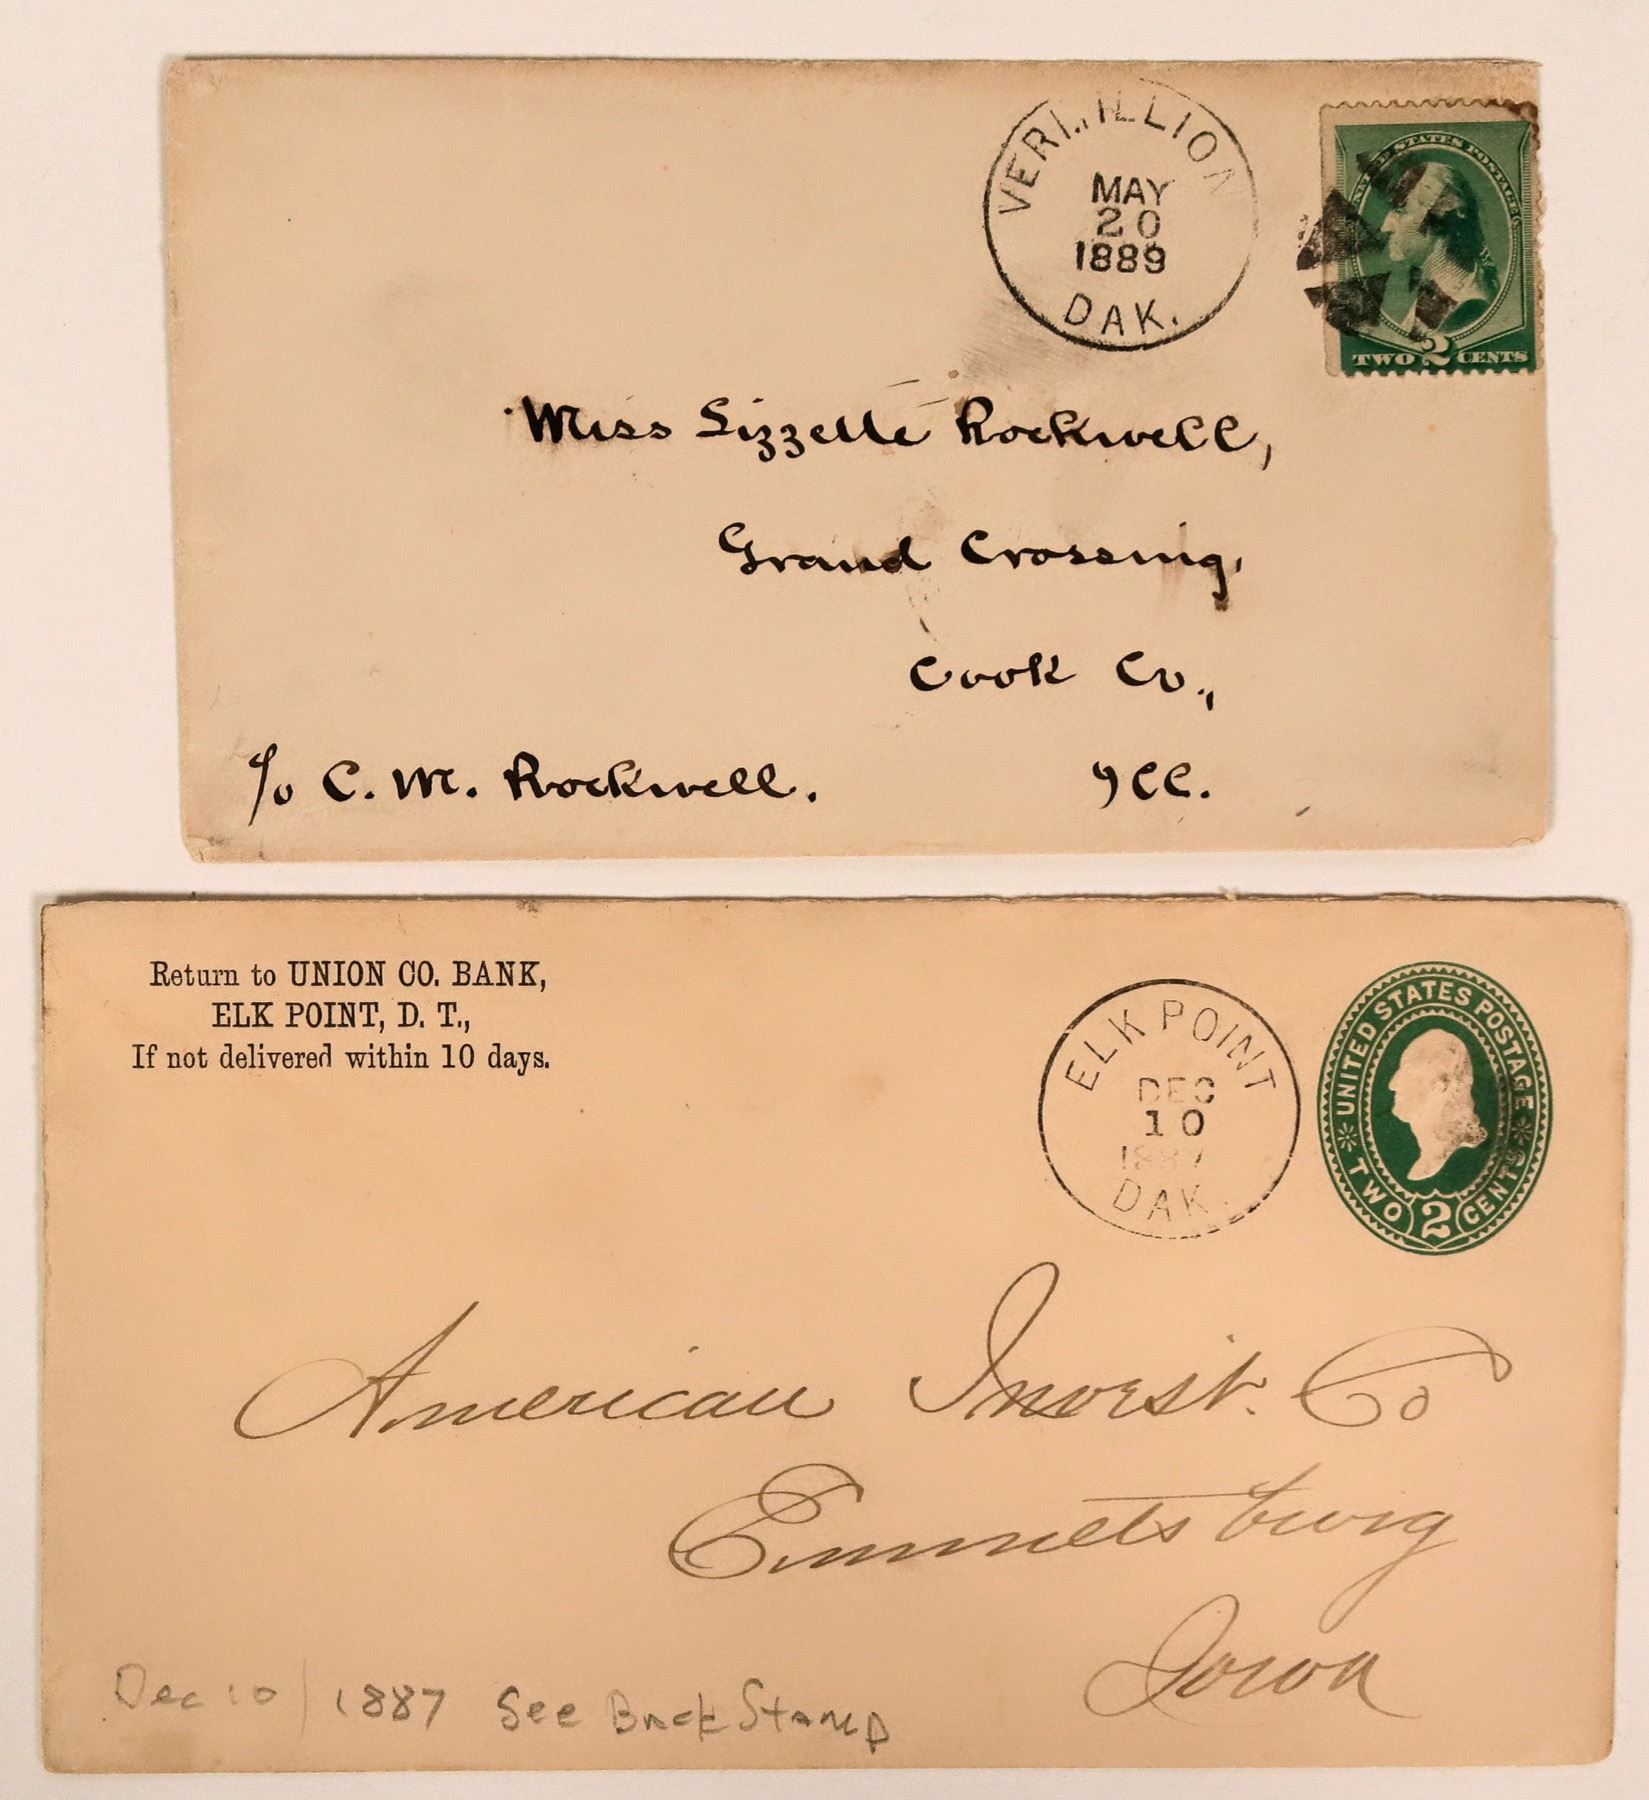 VERMILLION
MAY
20
1889
DAK.
UNITED STATES POSTAGE
TWO 2 CENTS
Miss Lizzette Rockwell,
Grand Crossing,
Cook Co.,
c/o C. M. Rockwell.
Ill.
Return to UNION CO. BANK,
ELK POINT, D. T.,
If not delivered within 10 days.
ELK POINT
DEC
10
1887
DAK.
UNITED STATES POSTAGE
TWO 2 CENTS
American Invest. Co
Emmetsburg
Iowa
Dec 10 / 1887 See Back Stamp